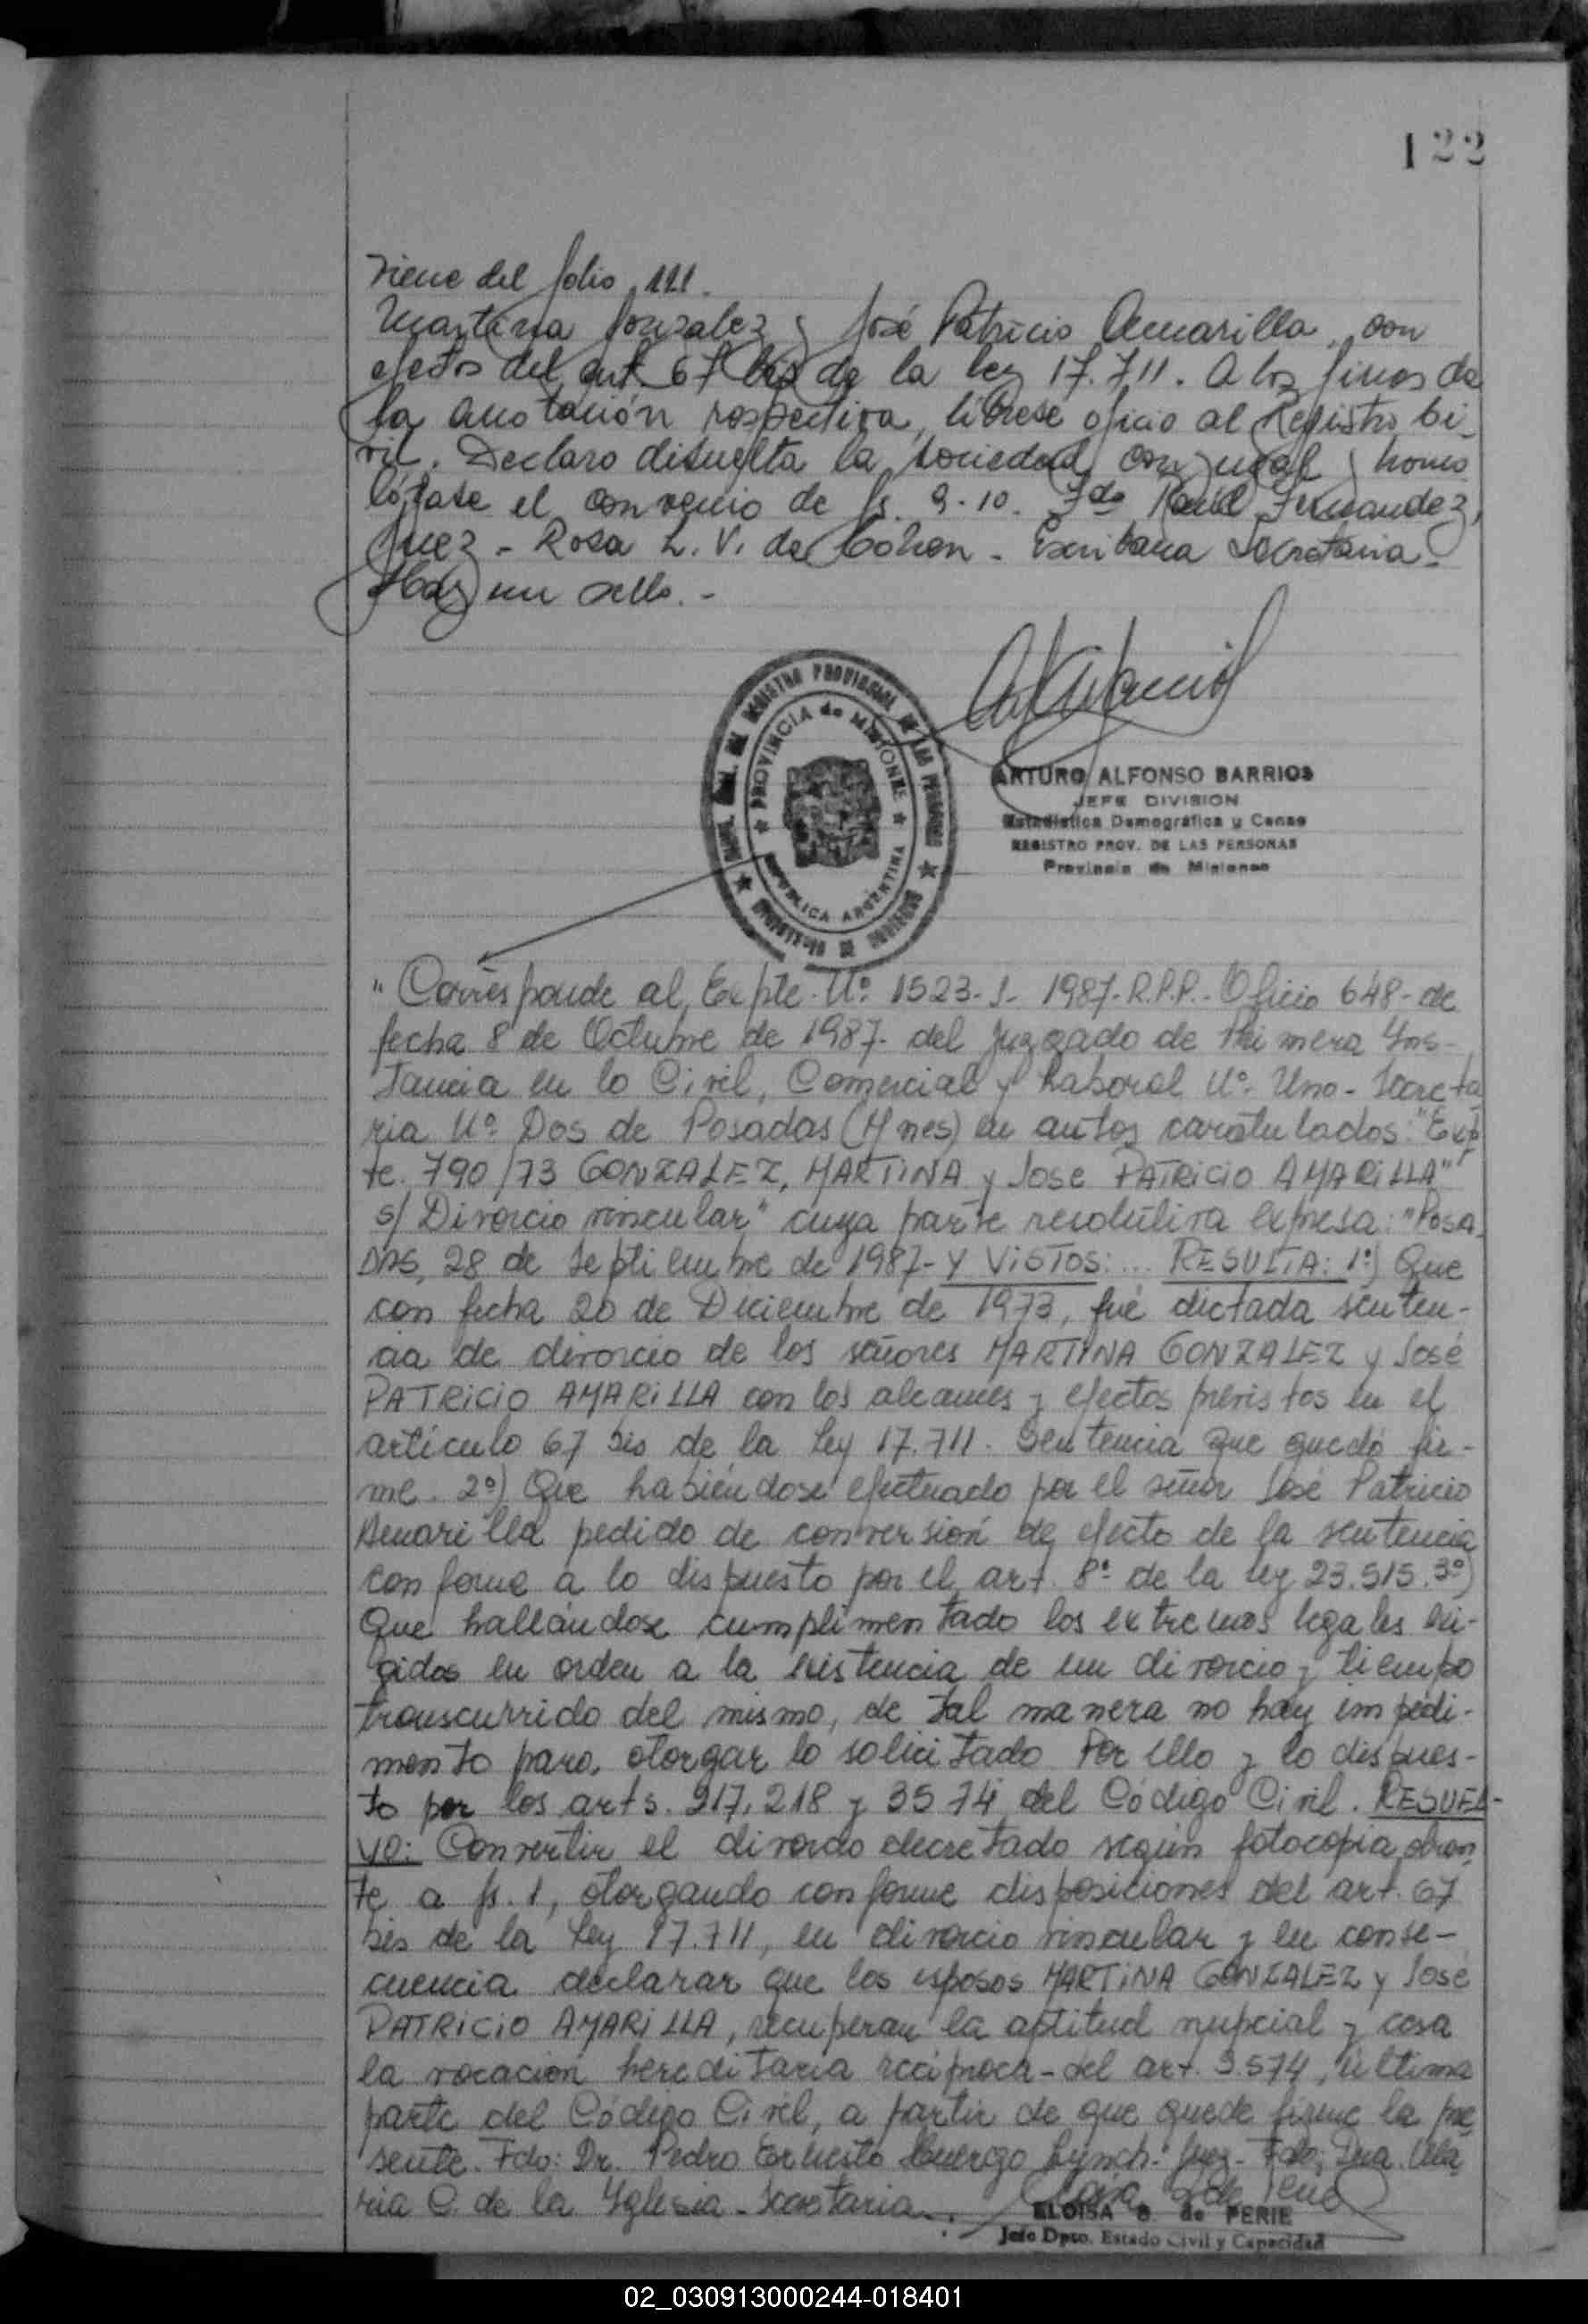 122
Viene del folio 111.
Martina Gonzalez y José Patricio Amarilla, con
efectos del art. 67 bis de la ley 17.711. A los fines de
la anotación respectiva, líbrese oficio al Registro Ci-
vil. Declaro disuelta la sociedad conyugal y homo
lógase el convenio de fs. 9-10. Fdo Raúl Fernandez,
Juez - Rosa L. V. de Cohen - Escribana Secretaria.
Hay un sello. -
REGISTRO PROVINCIAL DE LAS PERSONAS
PROVINCIA de MISIONES
REPUBLICA ARGENTINA
ARTURO ALFONSO BARRIOS
JEFE DIVISION
Estadística Demográfica y Censo
REGISTRO PROV. DE LAS PERSONAS
Provincia de Misiones
"Corresponde al Expte. Nº 1523-J- 1987-R.P.P.- Oficio 648- de
fecha 8 de Octubre de 1987- del Juzgado de Primera Ins-
tancia en lo Civil, Comercial y Laboral Nº Uno- Secreta
ria Nº Dos de Posadas (Mnes) en autos caratulados: "Exp
te. 790/73 GONZALEZ, MARTINA y José PATRICIO AMARILLA"
s/ Divorcio vincular" cuya parte resolutiva expresa: "POSA
DAS, 28 de Septiembre de 1987- Y VISTOS: ... RESULTA: 1º) Que
con fecha 20 de Diciembre de 1973, fué dictada senten-
cia de divorcio de los señores MARTINA GONZALEZ y José
PATRICIO AMARILLA con los alcances y efectos previstos en el
artículo 67 bis de la Ley 17.711. Sentencia que quedó fir-
me. 2º) Que habiéndose efectuado por el señor José Patricio
Amarilla pedido de conversión de efecto de la sentencia
conforme a lo dispuesto por el art. 8º de la ley 23.515. 3º)
Que hallándose cumplimentado los extremos legales exi-
gidos en orden a la existencia de un divorcio y tiempo
transcurrido del mismo, de tal manera no hay impedi-
mento para otorgar lo solicitado. Por ello y lo dispues-
to por los arts. 217, 218 y 3574 del Código Civil. RESUEL-
VO: Convertir el divorcio decretado según fotocopia obran
te a fs. 1, otorgando conforme disposiciones del art. 67
bis de la Ley 17.711, en divorcio vincular y en conse-
cuencia declarar que los esposos MARTINA GONZALEZ y José
PATRICIO AMARILLA, recuperan la aptitud nupcial y cesa
la vocación hereditaria recíproca- del art. 3.574, última
parte del Código Civil, a partir de que quede firme la pre
sente. Fdo: Dr. Pedro Ernesto Huergo Lynch- Juez- Fdo: Dra.
ria C. de la Yglesia - Secretaria.
ELOISA G. de PERIE
Jefe Dpto. Estado Civil y Capacidad
02_030913000244-018401